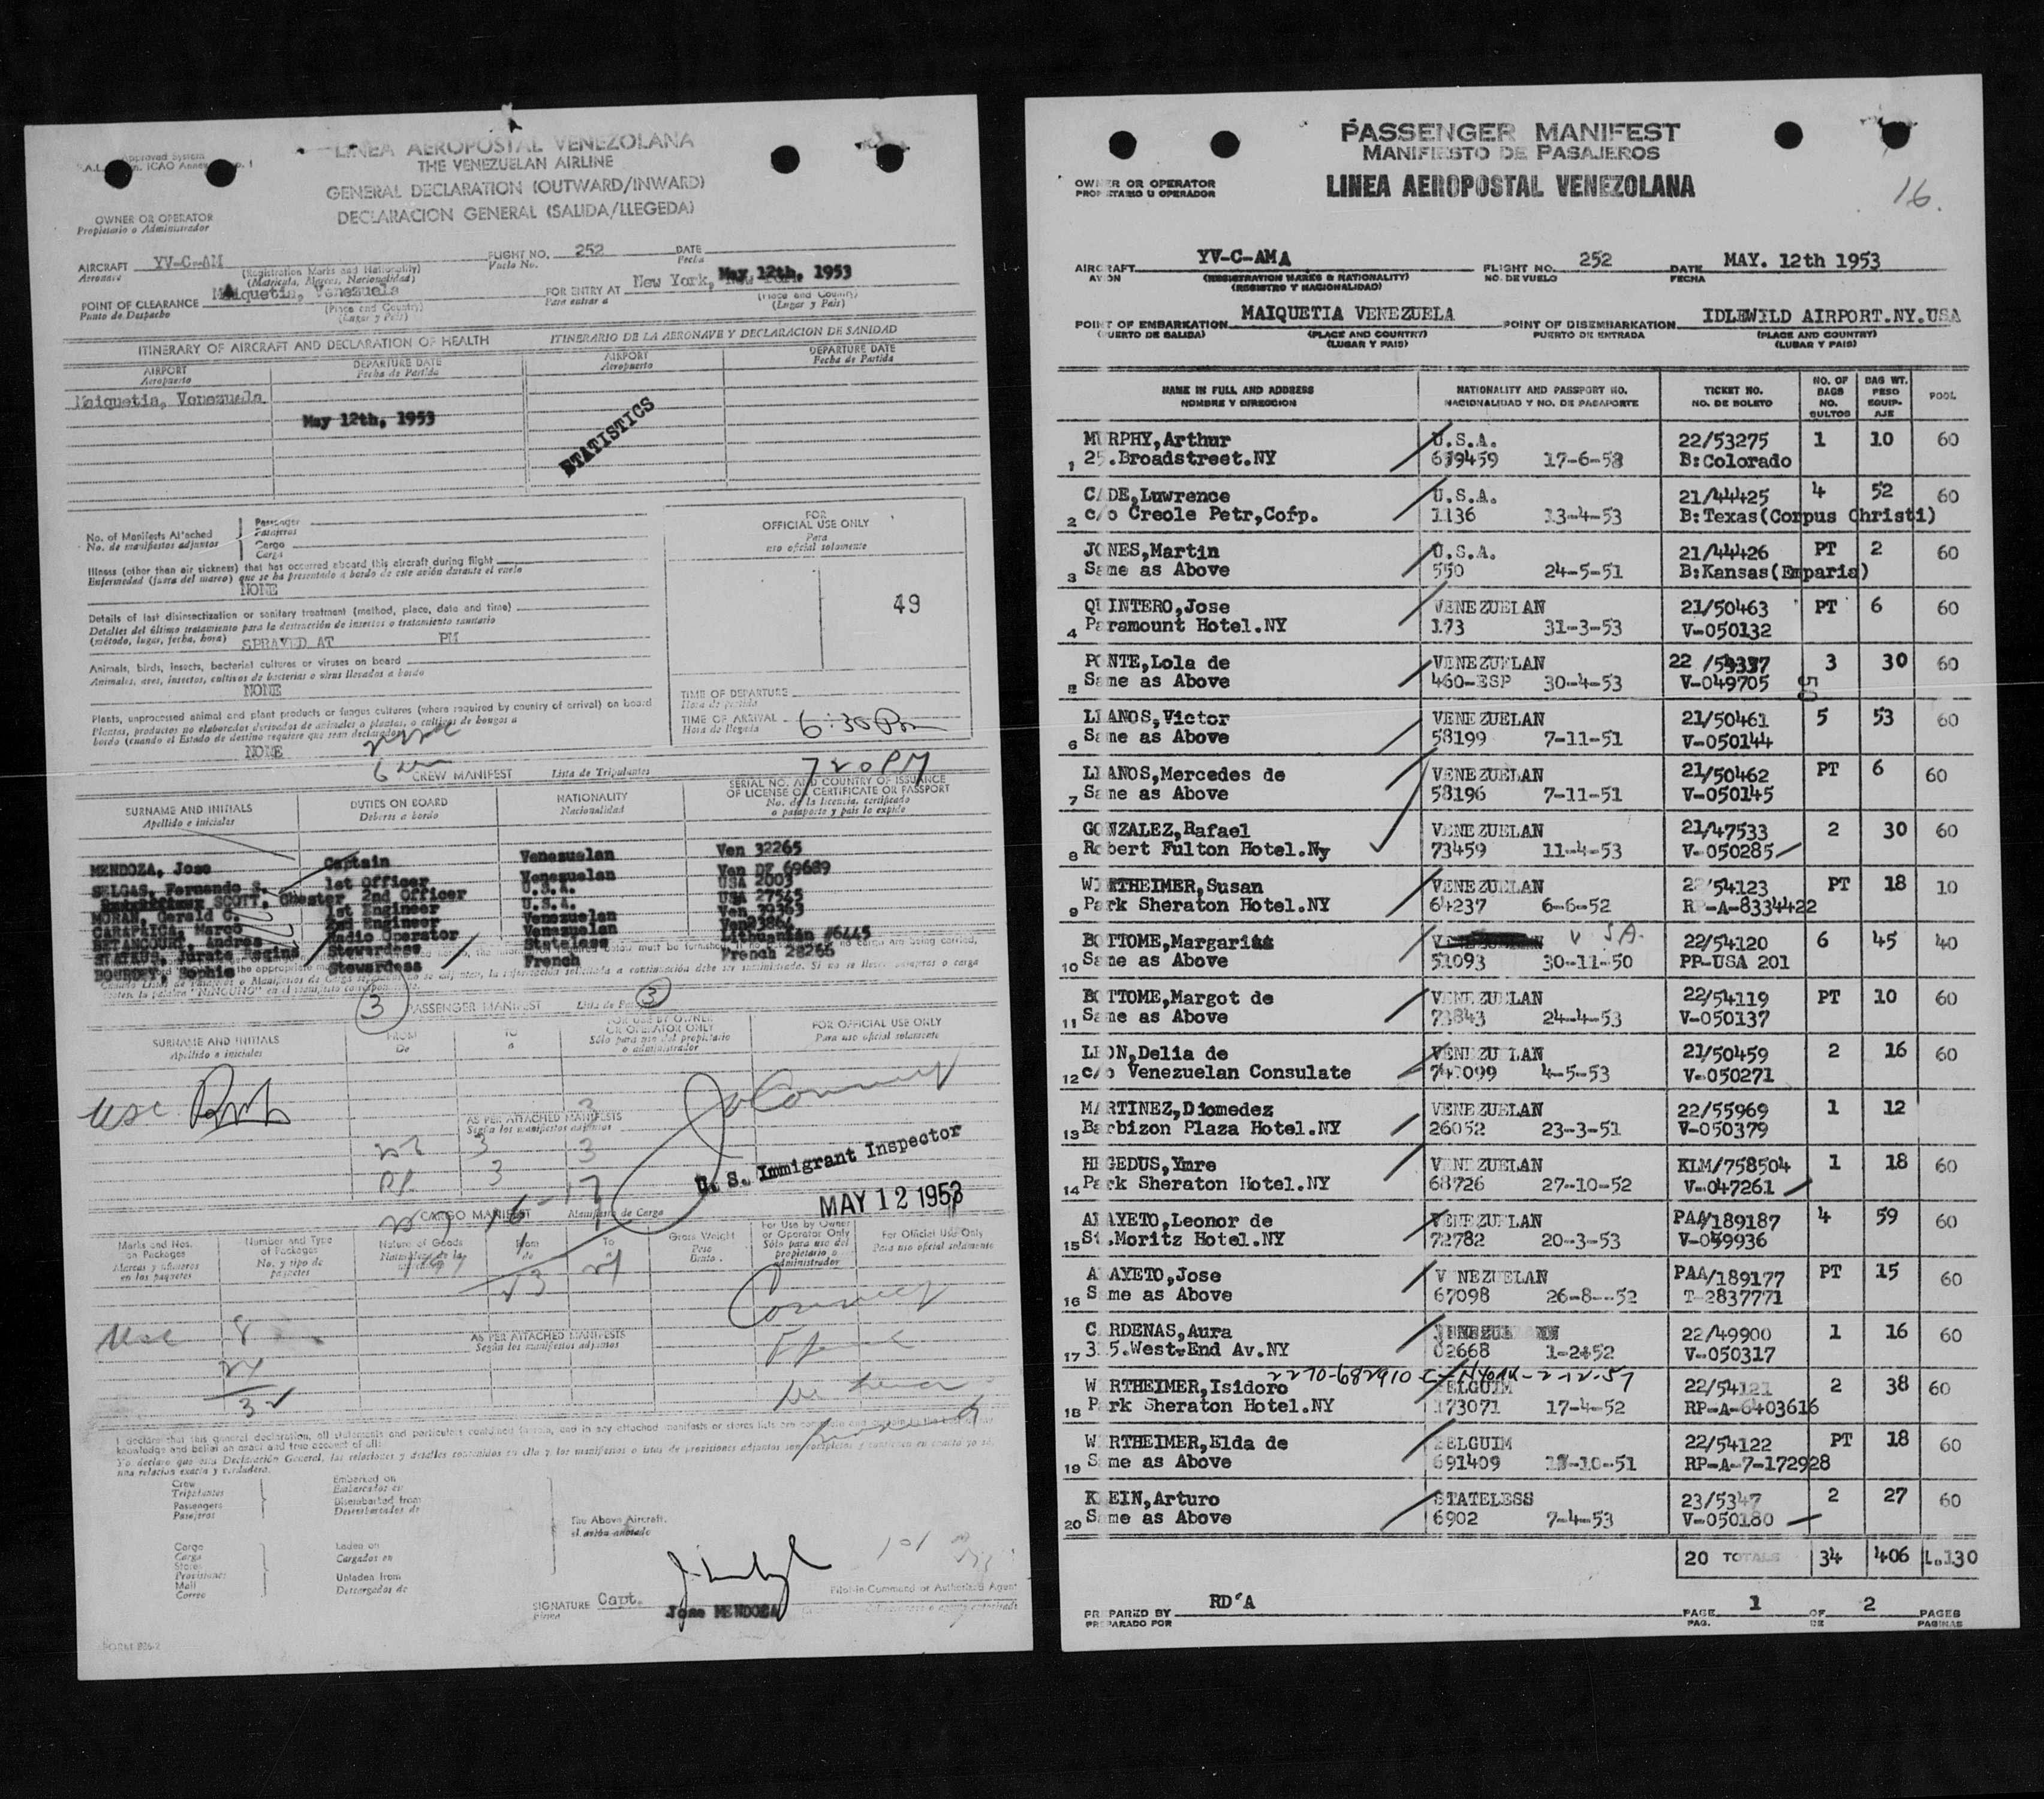 Approved System
LINEA AEROPOSTAL VENEZOLANA
THE VENEZUELAN AIRLINE
GENERAL DECLARATION (OUTWARD/INWARD)
DECLARACION GENERAL (SALIDA/LLEGEDA)
OWNER OR OPERATOR
Propietario o Administrador
AIRCRAFT YV-C-AM FLIGHT NO. 252 DATE
Aeronave (Registration Marks and Nationality) Vuelo No. Fecha
(Matricula, Marcas, Nacionalidad)
POINT OF CLEARANCE Maiquetia, Venezuela FOR ENTRY AT New York, May 12th, 1953
Punto de Despacho (Place and Country) Para entrar a (Place and Country)
(Lugar y Pais) (Lugar y Pais)
ITINERARY OF AIRCRAFT AND DECLARATION OF HEALTH ITINERARIO DE LA AERONAVE Y DECLARACION DE SANIDAD
AIRPORT DEPARTURE DATE AIRPORT DEPARTURE DATE
Aeropuerto Fecha de Partida Aeropuerto Fecha de Partida
Maiquetia, Venezuela
May 12th, 1953
STATISTICS
No. of Manifests Attached Passenger
No. de manifiestos adjuntos Pasajeros
Cargo
Carga
FOR
OFFICIAL USE ONLY
Para
uso oficial solamente
Illness (other than air sickness) that has occurred aboard this aircraft during flight
Enfermedad (fuera del mareo) que se ha presentado a bordo de este avión durante el vuelo
NONE
49
Details of last disinsectization or sanitary treatment (method, place, date and time)
Detalles del último tratamiento para la destrucción de insectos o tratamiento sanitario
(método, lugar, fecha, hora) SPRAYED AT PM
Animals, birds, insects, bacterial cultures or viruses on board
Animales, aves, insectos, cultivos de bacterias o virus llevados a bordo
NONE
Plants, unprocessed animal and plant products or fungus cultures (where required by country of arrival) on board
Plantas, productos no elaborados derivados de animales o plantas, o cultivos de hongos a
bordo (cuando el Estado de destino requiere que sean declarados)
NONE
TIME OF DEPARTURE
Hora de partida
TIME OF ARRIVAL 6:30 Pm
Hora de llegada
720 PM
CREW MANIFEST Lista de Tripulantes
SURNAME AND INITIALS DUTIES ON BOARD NATIONALITY SERIAL NO. AND COUNTRY OF ISSUANCE
OF LICENSE OR CERTIFICATE OR PASSPORT
Apellido e iniciales Deberes a bordo Nacionalidad No. de la licencia, certificado
o pasaporte y pais lo expide
MENDOZA, Jose Captain Venezuelan Ven 32265
SELGAS, Fernando S. 1st Officer Venezuelan Ven DF 69689
SCOTT, Chester 2nd Officer U.S.A. USA 2003
MORAN, Gerald C. 1st Engineer U.S.A. USA 27545
CARAPAICA, Marco 2nd Engineer Venezuelan Ven 39363
BETANCOURT, Andres Radio Operator Venezuelan
STATKUS, Jurate Regina Stewardess Stateless Lithuanian #6445
BOURDET, Sophie Stewardess French French 28266
3 PASSENGER MANIFEST 3
SURNAME AND INITIALS FROM TO FOR USE BY OWNER OR OPERATOR ONLY FOR OFFICIAL USE ONLY
Apellido e iniciales De a Sólo para uso del propietario o administrador Para uso oficial solamente
usc
AS PER ATTACHED MANIFESTS
Según los manifiestos adjuntos
3
3 3
3
U. S. Immigrant Inspector
MAY 12 1953
CARGO MANIFEST Manifiesto de Carga
Marks and Nos. on Packages Number and Type of Packages Nature of Goods From To Gross Weight For Use by Owner or Operator Only For Official Use Only
Marcas y números en los paquetes No. y tipo de paquetes de a Peso Bruto Sólo para uso del propietario o administrador Para uso oficial solamente
8
AS PER ATTACHED MANIFESTS
Según los manifiestos adjuntos
I declare that this general declaration, all statements and particulars contained therein, and in any attached manifests or stores lists are complete and
knowledge and belief an exact and true account of all:
una relación exacta y verdadera.
Crew Embarked on
Tripulantes Embarcados en
Passengers Disembarked from
Pasajeros Desembarcados de
The Above Aircraft.
el avión anotado
Cargo Laden on
Carga Cargados en
Stores
Provisiones
Mail Unladen from
Correo Descargados de
Pilot-in-Command or Authorized Agent
SIGNATURE Capt.
Firma Jose MENDOZA
PASSENGER MANIFEST
MANIFIESTO DE PASAJEROS
OWNER OR OPERATOR LINEA AEROPOSTAL VENEZOLANA
PROPIETARIO U OPERADOR
16.
AIRCRAFT YV-C-AMA FLIGHT NO. 252 DATE MAY. 12th 1953
AVION (REGISTRATION MARKS & NATIONALITY) NO. DE VUELO FECHA
(REGISTRO Y NACIONALIDAD)
POINT OF EMBARKATION MAIQUETIA VENEZUELA POINT OF DISEMBARKATION IDLEWILD AIRPORT.NY.USA
(PUERTO DE SALIDA) (PLACE AND COUNTRY) PUERTO DE ENTRADA (PLACE AND COUNTRY)
(LUGAR Y PAIS) (LUGAR Y PAIS)
NAME IN FULL AND ADDRESS NATIONALITY AND PASSPORT NO. TICKET NO. NO. OF BAGS BAG WT. POOL
NOMBRE Y DIRECCION NACIONALIDAD Y NO. DE PASAPORTE NO. DE BOLETO NO. BULTOS PESO EQUIP-AJE
MURPHY, Arthur U.S.A. 22/53275 1 10 60
1 25.Broadstreet.NY 679459 17-6-53 B:Colorado
CADE, Luwrence U.S.A. 21/44425 4 52 60
2 c/o Creole Petr,Cofp. 1136 13-4-53 B:Texas(Corpus Christi)
JONES, Martin U.S.A. 21/44426 PT 2 60
3 Same as Above 550 24-5-51 B:Kansas(Emparia)
QUINTERO, Jose VENEZUELAN 21/50463 PT 6 60
4 Paramount Hotel.NY 173 31-3-53 V-050132
PONTE, Lola de VENEZUELAN 22/54337 3 30 60
5 Same as Above 460-ESP 30-4-53 V-049705
LLANOS, Victor VENEZUELAN 21/50461 5 53 60
6 Same as Above 58199 7-11-51 V-050144
LLANOS, Mercedes de VENEZUELAN 21/50462 PT 6 60
7 Same as Above 58196 7-11-51 V-050145
GONZALEZ, Rafael VENEZUELAN 21/47533 2 30 60
8 Robert Fulton Hotel.Ny 73459 11-4-53 V-050285
WERTHEIMER, Susan VENEZUELAN 22/54123 PT 18 10
9 Park Sheraton Hotel.NY 64237 6-6-52 RP-A-8334422
BOTTOME, Margaritt U.S.A. 22/54120 6 45 40
10 Same as Above 51093 30-11-50 PP-USA 201
BOTTOME, Margot de VENEZUELAN 22/54119 PT 10 60
11 Same as Above 73843 24-4-53 V-050137
LEON, Delia de VENEZUELAN 21/50459 2 16 60
12 c/o Venezuelan Consulate 4-5-53 V-050271
MARTINEZ, Diomedez VENEZUELAN 22/55969 1 12
13 Barbizon Plaza Hotel.NY 26052 23-3-51 V-050379
HEGEDUS, Ymre VENEZUELAN KLM/758504 1 18 60
14 Park Sheraton Hotel.NY 68726 27-10-52 V-047261
ARAYETO, Leonor de VENEZUELAN PAA/189187 4 59 60
15 St.Moritz Hotel.NY 72782 20-3-53 V-099936
ARAYETO, Jose VENEZUELAN PAA/189177 PT 15 60
16 Same as Above 67098 26-8-52 T-2837771
CARDENAS, Aura 22/49900 1 16 60
17 .West-End Av.NY 02668 1-2-52 V-050317
2270-682910
WERTHEIMER, Isidoro BELGUIM 22/54121 2 38 60
18 Park Sheraton Hotel.NY 173071 17-4-52 RP-A-6403616
WERTHEIMER, Elda de BELGUIM 22/54122 PT 18 60
19 Same as Above 691409 -10-51 RP-A-7-172928
KLEIN, Arturo STATELESS 23/5347 2 27 60
20 Same as Above 6902 7-4-53 V-050180
20 TOTALS 34 406 1.130
PREPARED BY RD'A PAGE 1 OF 2 PAGES
PREPARADO POR PAG. DE PAGINAS